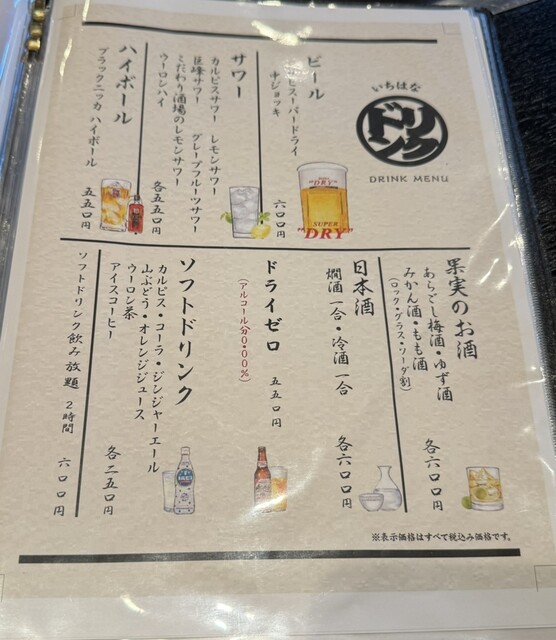 いちはな
ドリンク
DRINK MENU
ビール
スーパードライ
中ジョッキ
六〇〇円
"DRY"
SUPER
"DRY"
サワー
カルピスサワー レモンサワー
巨峰サワー グレープフルーツサワー
こだわり酒場のレモンサワー
ウーロンハイ
各五五〇円
ハイボール
ブラックニッカハイボール
五五〇円
果実のお酒
あらごし梅酒・ゆず酒
みかん酒・もも酒
(ロック・グラス・ソーダ割)
各六〇〇円
日本酒
燗酒一合・冷酒一合
各六〇〇円
ドライゼロ
(アルコール分0・00%)
五五〇円
ソフトドリンク
カルピス・コーラ・ジンジャーエール
山ぶどう・オレンジジュース
ウーロン茶
アイスコーヒー
各二五〇円
ソフトドリンク飲み放題 2時間 六〇〇円
※表示価格はすべて税込み価格です。